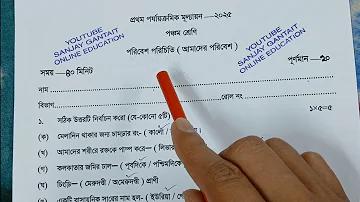 প্রথম পর্যায়ক্রমিক মূল্যায়ন —২০২৫
YOUTUBE
SANJAY GANTAIT
ONLINE EDUCATION
পঞ্চম শ্রেণি
YOUTUBE
SANJAY GANTAIT
ONLINE EDUCATION
পরিবেশ পরিচিতি ( আমাদের পরিবেশ )
সময় —৪০ মিনিট
পূর্ণমান —২০
নাম
বিভাগ
রোল নং
১. সঠিক উত্তরটি নির্বাচন করো (যে-কোনো ৫টি)
১×৫=৫
(ক) মেলানিন থাকার জন্য চামড়ার রং- ( কালো /
(খ) আমাদের শরীরে রক্তকে পাম্প করে— ( লিভার
(গ) কলকাতার জমির ঢাল— ( পূর্বদিকে / পশ্চিমদিকে
(ঘ) চিংড়ি— ( মেরুদণ্ডী / অমেরুদণ্ডী ) প্রাণী
একটি রাসায়নিক সারের নাম হল- ( ইউরিয়া /